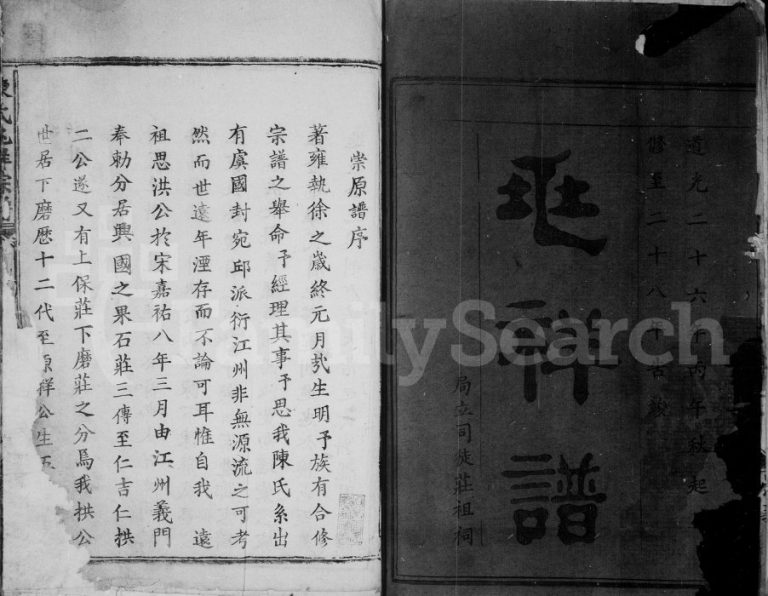 道光二十六年丙午秋起
修至二十八年告竣
兆祥譜
局立司徒莊祖祠
崇原譜序
著雍執徐之歲終元月哉生明予族有合修
宗譜之舉命予經理其事予思我陳氏系出
有虞國封宛邱派衍江州非無源流之可考
然而世遠年湮存而不論可耳惟自我 遠
祖思洪公於宋嘉祐八年三月由江州義門
奉勅分居興國之果石莊三傳至仁吉仁拱
二公遂又有上保莊下磨莊之分焉我拱公
世居下磨歷十二代至原祥公生
FamilySearch